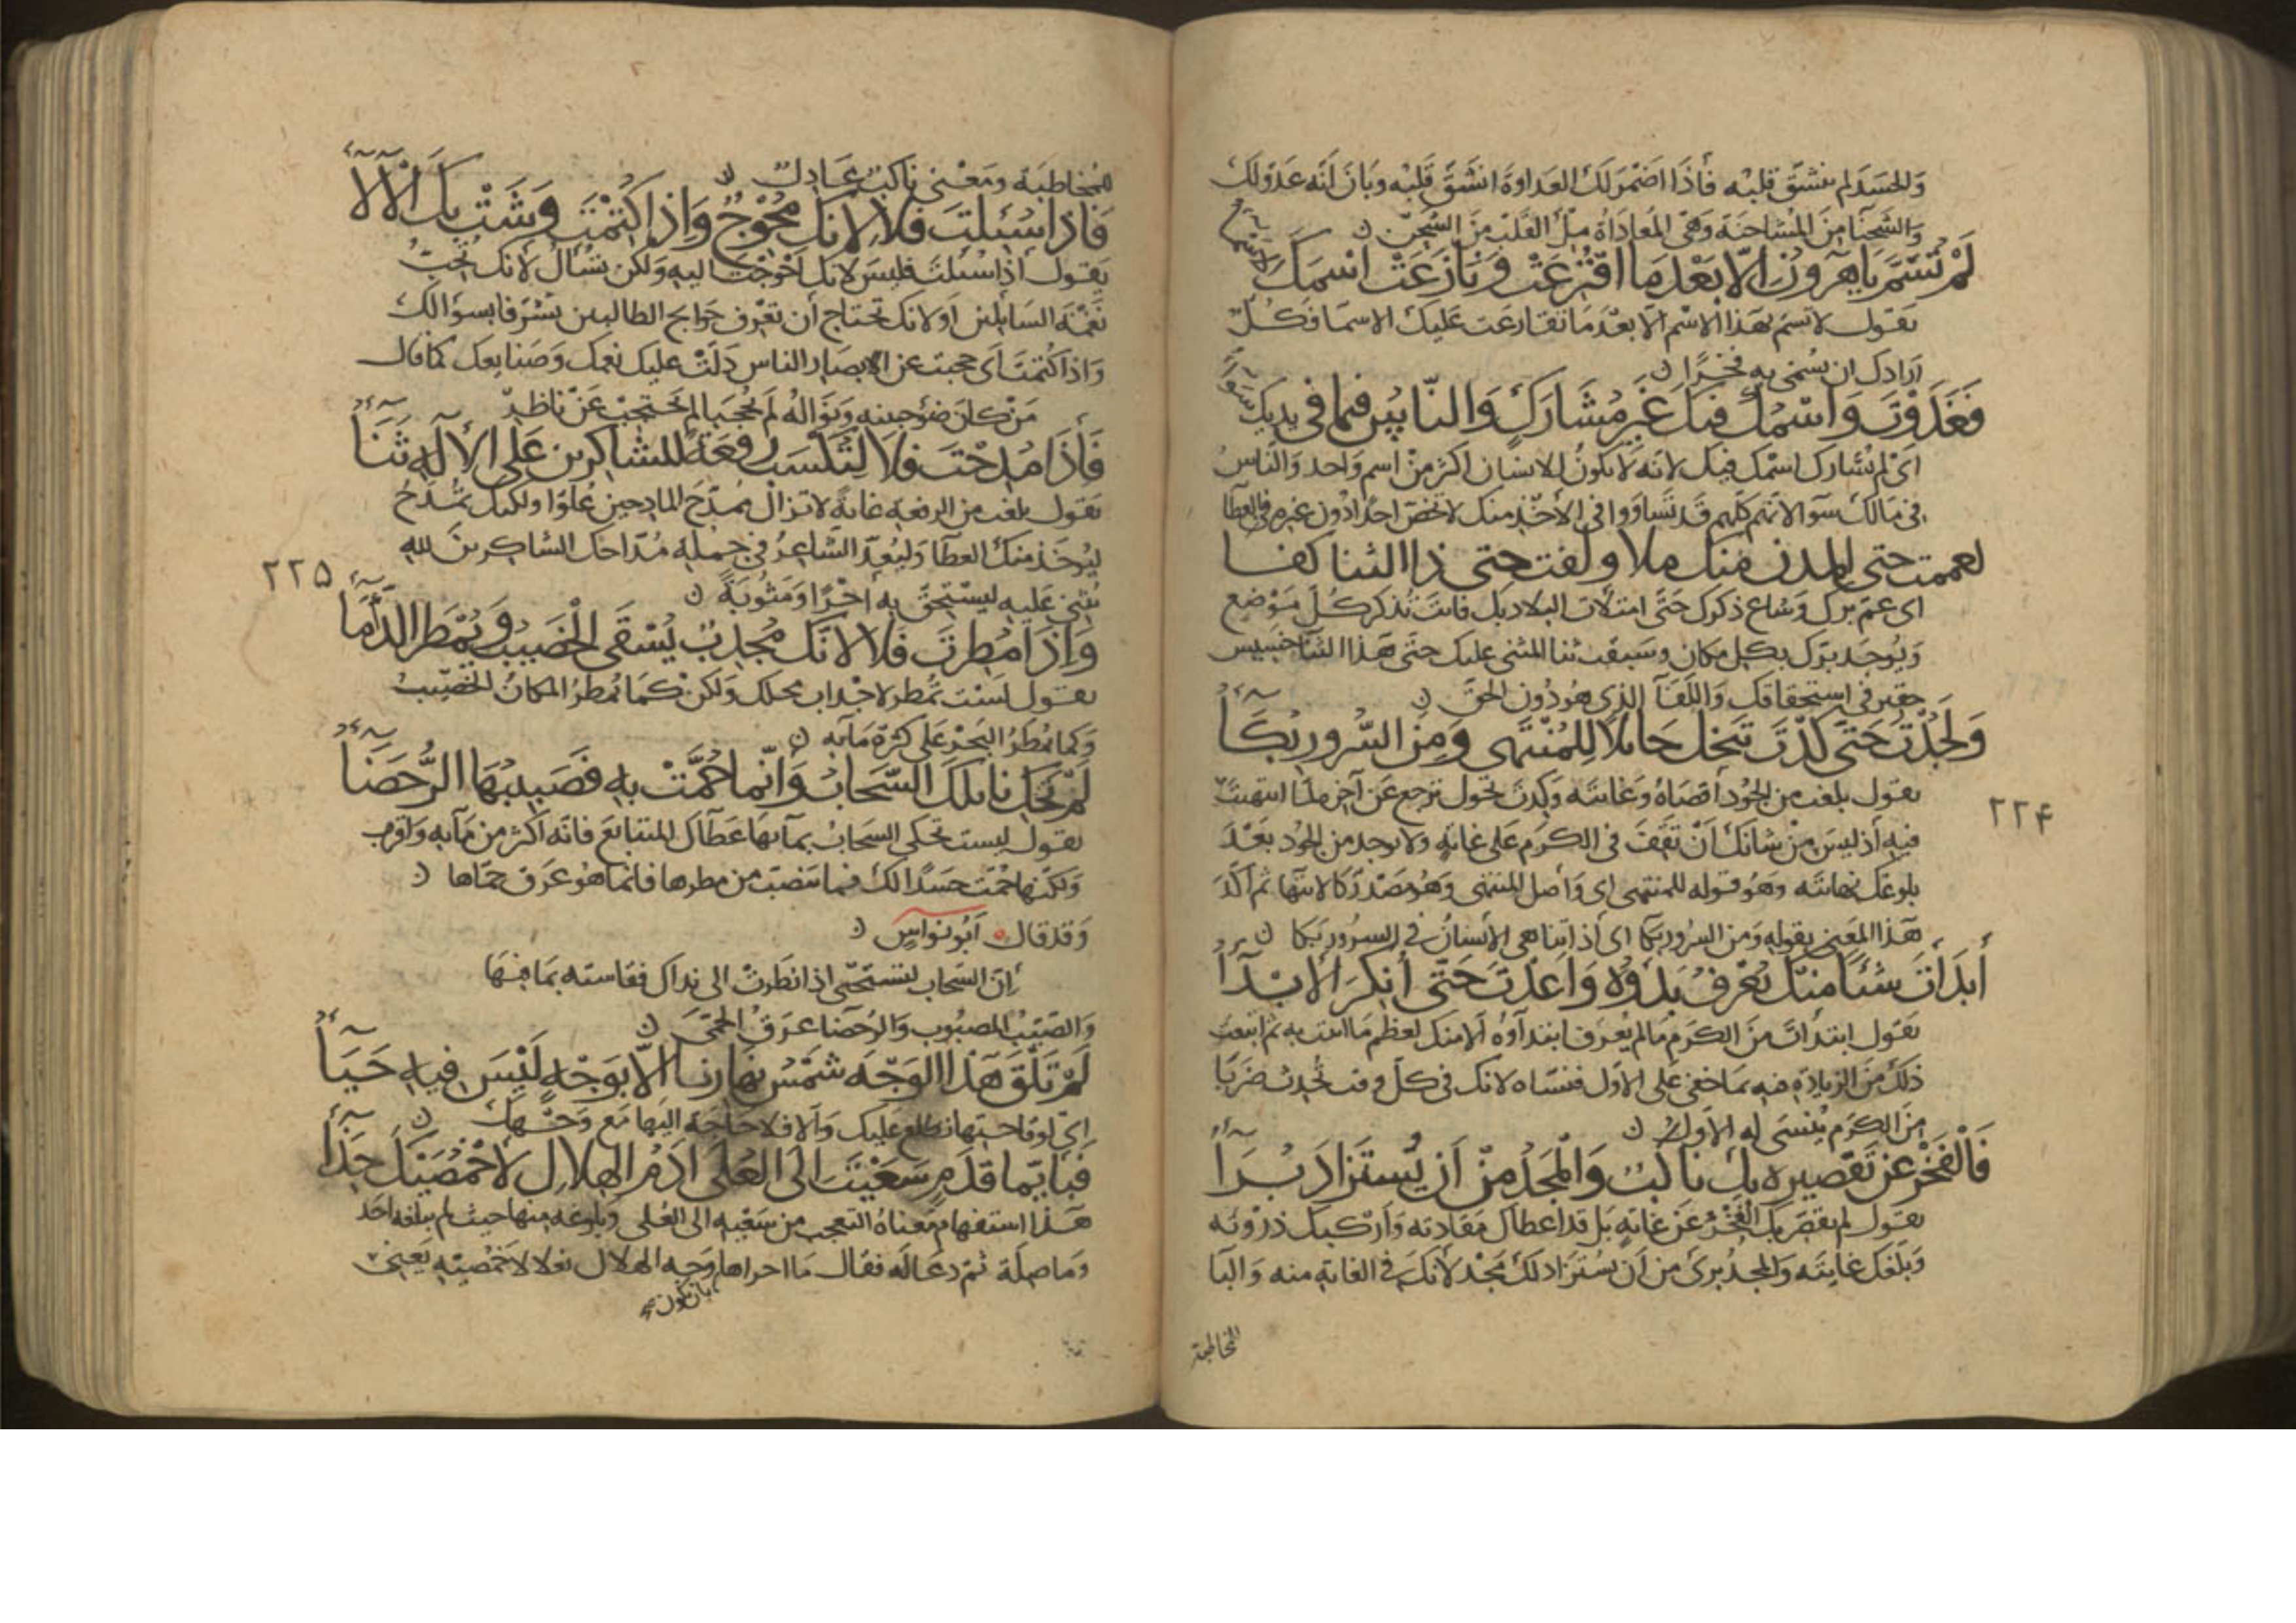 وَالحسَدَ لم ينشقّ قلبُه فأذَا اضمَرَ لكَ العَداوةَ انشَقّ قَلبُه وبَانَ انّه عَدوّ لكَ
وَالشحنَا مِنَ المشاحنَة وَهىَ المُعادَاةُ مِلْ القَلب مِنَ الشحن
لَمْ تُسَمّ يَا هٰرون الّا بَعْدَ مَا اقْتَرَعَتْ وَنَازَعَتْ اسْمَكَ الاَسْمَاءُ
يقول لا تسم بهَذا الاسْم الّا بعْدَ مَا تقارعَت عليكَ الاسمَا فكُلّ
اَرَادكَ ان يُسَمّى به فخرًا
فَغَدَوْتَ وَاسْمُكَ فيكَ غَيرُ مُشَاركٍ وَالنّاسُ فيمَا في يديكَ سَوَاءُ
اىْ لم يُشارك اسْمك فيك لانّه لَا يكونُ للانسَان اكثرَ مِنْ اسم وَاحد وَالنّاسُ
فى مَالكَ سَوآ لانّهم كلّهم قَد تسَاوَوا فى الأخْذ منك لا تخصّ احدًا دُون غيره في العطَا
لعممتَ حتى المدن منكَ ملا ولفتّ حتى ذا الثنا لفا
اى عَمّ برّك وَشاع ذكرك حَتّى امتلات البلاد بك فانتَ تُذكر كُلّ مَوْضِع
وَيُوجَد برّك بكل مكان وسَبقْت ثنا المثنى عليك حتى هَذا الثنَا خسِيس
حقير فى استحقاقك وَاللّفَآ الذى هُو دُون الحَقّ
وَلَجُدْتَ حَتّى كدْتَ تَبخل حَائلًا لِلمُنْتَهى وَمِنَ السُّرور بُكَآءُ
يقول بلغت من الجُود اقصَاهُ وَغايته وَكِدتَ تحول ترجع عَن آخره لمّا انتهيتَ
فيه أذ ليسَ مِنْ شانكَ اَنْ تقفَ فى الكرَم عَلى غايةٍ ولا يوجد من الجُود بَعْدَ
بلوغك نهايته وهَو قوله للمنتهى اى وَأصل المنتهى وَهُو مصَدر كالانتهَا ثم اكّدَ
هَذا المعنى بقوله وَمن السُرور بكآ اى أذا تناهى الأنسَانُ فى السرور بَكا
أبَدَأتَ شيْئًا منكَ يُعْرَفُ بَدْؤهُ وَاَعَدْتَ حَتّى أُنكِرَ الاِبْدَآءُ
يقول ابتدأتَ منَ الكرَم مَا لم يُعرَف ابتدآؤه الا منكَ لعظم مَا اتيت به ثم اتبعتَ
ذلكَ منَ الزيادة فيه مَا خفى عَلى الاوّل فنسَاه لانك فى كلّ وقت تُحدث ضَربًا
مِنَ الكرَم يُنسَى له الاوّل
فَالْفَخْرُ عَن تَقْصِيره بِكَ نَاكبٌ وَالْمَجْدُ مِنْ اَن يُسْتَزَادَ بَرَآءُ
يقول لم يقصّر بك الفَخْرُ عَن غايةٍ بل قد اعطاك مقادته وَاركبك ذرْوته
وَبلّغك غايتَه وَالمجدُ برىءٌ من اَن يُستزاد لكَ مَجْد لأنكَ فى الغاية منه وَالبَا
المخاطبة
٢٢۴
للمخاطبَة ومَعْنى ناكبٌ عَادلٌ
فَاذا سُئلتَ فَلا لِانّكَ مُحْوِجٌ وَاِذا كُتِمْتَ وَشَتْ بِكَ الآلَآءُ
يقول أذا سُئلتَ فليسَ لانك احْوَجْتَ اليه وَلكن تُسْأل لأنكَ تحِبّ
نَغمَة السَايلين اَو لانك تحتاج اَن تعْرف حَوايج الطالبين تشرّفا بسوالك
وَاذا كُتمتَ اَى حجبت عن الابصَار الناس دَلّتْ عليك نعمك وَصَنايعك كمَا قال
مَنْ كانَ ضَوءُ جبينه وَنوَالهُ لَم يُحْجَبَا لم يَحتجبْ عَنْ نَاظر
فَأذَا مُدحْتَ فلَا لِتَكسِبَ رِفْعَةً للشاكرين عَلى الاِلٰهِ ثَنَآءُ
يقول بلغتَ من الرفعة غايةً لا تزالُ بمَدْح المادحين عُلوّا ولكنك تُمدَحُ
ليُوخَذ منكَ العطَآ وَليُعدّ الشاعِرُ فى جملة مُدّاحك الشاكِرينَ لله
يُثنى عَليه ليستحقّ به أجْرًا وَمَثُوبَةً
وَاِذَا مُطِرْتَ فَلا لانّكَ مُجْدِبٌ يُسْقَى الْخَصِيبُ وَيُمْطَرُ الدَّأْمَآءُ
يقول لسْتَ تُمطر لاجْداب محلك وَلكنْ كمَا يُمطَرُ المكانُ الخصيبُ
وَكما يُمطَرُ البَحْرُ عَلى كثرة مَآئه
لَمْ تَحْكِ نائلَكَ السَّحَابُ وَانّما حُمَّتْ بهِ فَصَبيبُهَا الرُّحَضَآءُ
يقول ليست تحكى السحَابُ بمآئها عَطآكَ المتتابعَ فانّه اكثر من مآئه وَاغزر
وَلكنّها حُمّت حسَدًا لك فما ينصَبّ من مطرها فانما هُو عَرَق حمّاها
وَقد قال أبُو نواس
اِنّ السَّحاب لتستحيى اذا نَظرتْ الى نداكَ فقاسته بمَا فيهَا
وَالصَّبيبُ المصبُوب وَالرُحضَا عرَقُ الحمّى
لَمْ تَلْقَ هٰذا الوَجْهَ شَمْسُ نَهارنَا اِلّا بوَجْهٍ لَيْسَ فيهِ حَيَآءُ
اىْ لوقاحَتها تطلع عَليك وَالّا فلا حَاجَة اليها مَع وَجْهكَ
فَبِايّما قَدَمٍ سَعَيْتَ اِلَى العُلَى اُدُمُ الهِلالِ لأَخْمَصَيْكَ حِذَآءُ
هَذا استفهام مَعناهُ التعجب من سَعْيه الى العُلى وَبلوغه منها حيث لم يبلغه احَد
وَمَا صِلَة ثمّ دعَا لَه فقال
٢٢۵